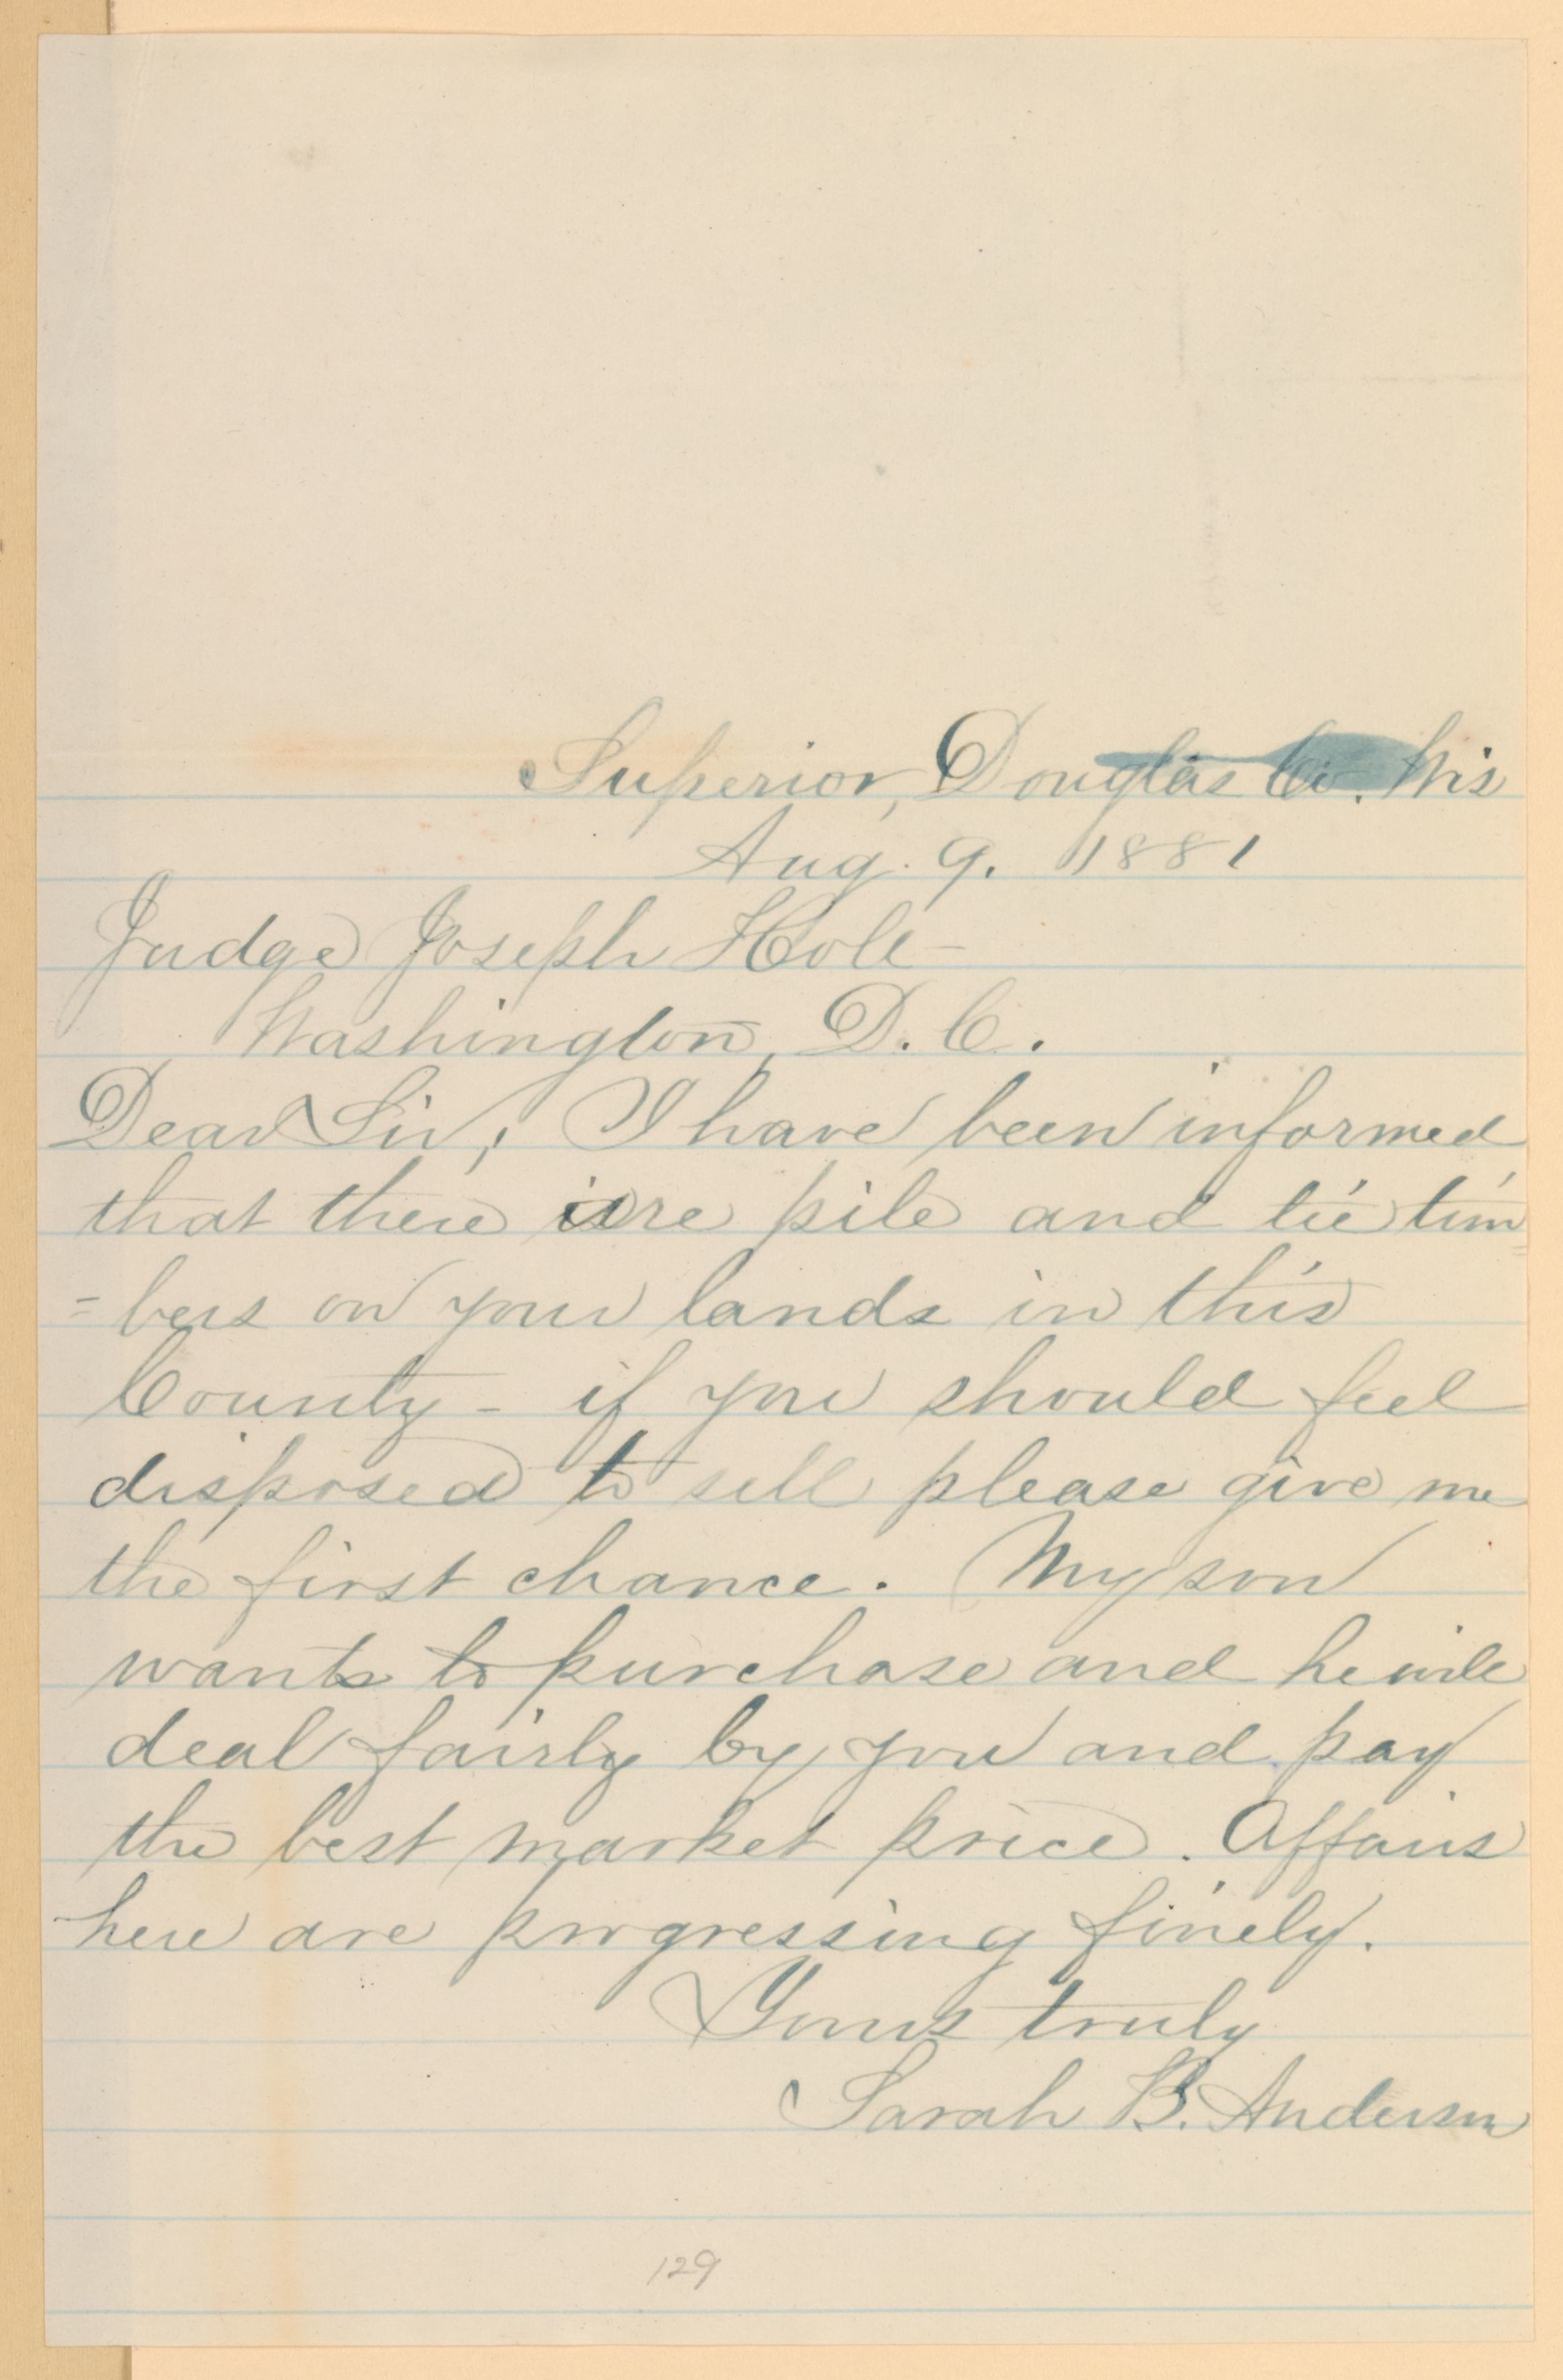 Superior, Douglas Co. Wis
Aug. 9. 1881
Judge Joseph Holt
Washington, D. C.
Dear Sir, I have been informed
that there are pile and tie tim
=bers on your lands in this
County - if you should feel
disposed to sell please give me
the first chance. My son
wants to purchase and he will
deal fairly by you and pay
the best market price. Affairs
here are progressing finely.
Yours truly
Sarah B. Anderson
129